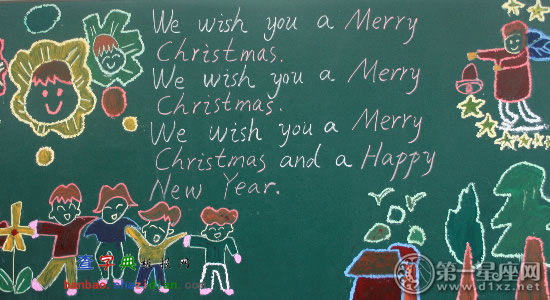 We wish you a Merry
Christmas.
We wish you a Merry
Christmas.
We wish you a Merry
Christmas and a Happy
New Year.
查字典
第一星座网
www.d1xz.net